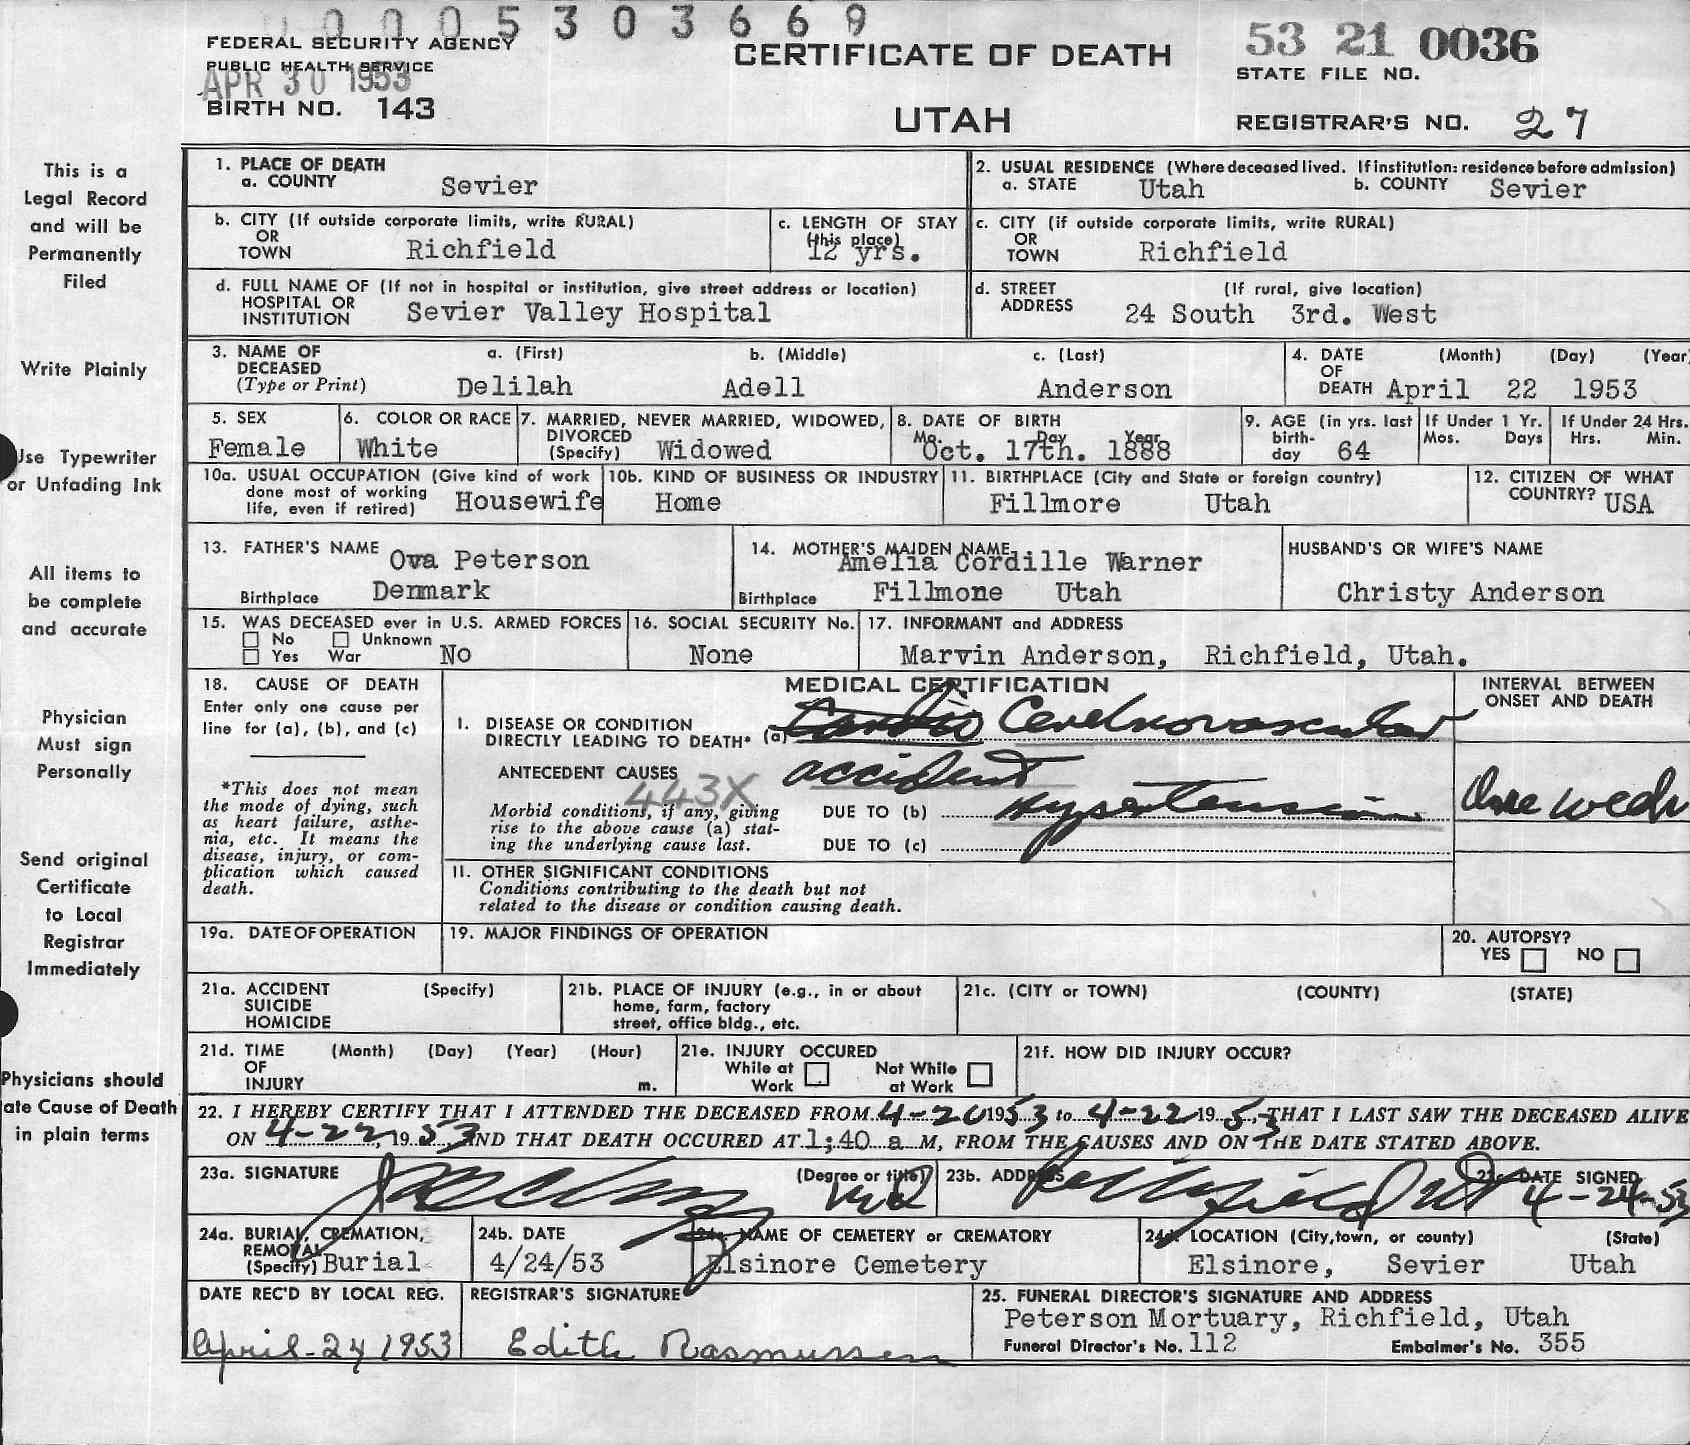 0005303669
FEDERAL SECURITY AGENCY
PUBLIC HEALTH SERVICE
APR 30 1953
BIRTH NO. 143
CERTIFICATE OF DEATH
UTAH
53 21 0036
STATE FILE NO.
REGISTRAR'S NO. 27
This is a
Legal Record
and will be
Permanently
Filed
Write Plainly
Use Typewriter
or Unfading Ink
All items to
be complete
and accurate
Physician
Must sign
Personally
Send original
Certificate
to Local
Registrar
Immediately
Physicians should
ate Cause of Death
in plain terms
1. PLACE OF DEATH
a. COUNTY Sevier
2. USUAL RESIDENCE (Where deceased lived. If institution: residence before admission)
a. STATE Utah b. COUNTY Sevier
b. CITY (If outside corporate limits, write RURAL)
OR
TOWN Richfield
c. LENGTH OF STAY
(this place)
12 yrs.
c. CITY (if outside corporate limits, write RURAL)
OR
TOWN Richfield
d. FULL NAME OF (If not in hospital or institution, give street address or location)
HOSPITAL OR
INSTITUTION Sevier Valley Hospital
d. STREET (If rural, give location)
ADDRESS 24 South 3rd. West
3. NAME OF
DECEASED
(Type or Print)
a. (First) b. (Middle) c. (Last)
Delilah Adell Anderson
4. DATE (Month) (Day) (Year)
OF
DEATH April 22 1953
5. SEX
Female
6. COLOR OR RACE
White
7. MARRIED, NEVER MARRIED, WIDOWED,
DIVORCED
(Specify) Widowed
8. DATE OF BIRTH
Mo. Day Year
Oct. 17th. 1888
9. AGE (in yrs. last
birth-
day 64
If Under 1 Yr.
Mos. Days
If Under 24 Hrs.
Hrs. Min.
10a. USUAL OCCUPATION (Give kind of work
done most of working
life, even if retired) Housewife
10b. KIND OF BUSINESS OR INDUSTRY
Home
11. BIRTHPLACE (City and State or foreign country)
Fillmore Utah
12. CITIZEN OF WHAT
COUNTRY? USA
13. FATHER'S NAME Ova Peterson
Birthplace Denmark
14. MOTHER'S MAIDEN NAME
Amelia Cordille Warner
Birthplace Fillmone Utah
HUSBAND'S OR WIFE'S NAME
Christy Anderson
15. WAS DECEASED ever in U.S. ARMED FORCES
No Unknown
Yes War No
16. SOCIAL SECURITY No.
None
17. INFORMANT and ADDRESS
Marvin Anderson, Richfield, Utah.
18. CAUSE OF DEATH
Enter only one cause per
line for (a), (b), and (c)
*This does not mean
the mode of dying, such
as heart failure, asthe-
nia, etc. It means the
disease, injury, or com-
plication which caused
death.
MEDICAL CERTIFICATION
INTERVAL BETWEEN
ONSET AND DEATH
I. DISEASE OR CONDITION
DIRECTLY LEADING TO DEATH* (a) Cardio Cerebrovascular
accident
ANTECEDENT CAUSES
443X
Morbid conditions, if any, giving
rise to the above cause (a) stat-
ing the underlying cause last.
DUE TO (b) Hypertension
One week
DUE TO (c)
11. OTHER SIGNIFICANT CONDITIONS
Conditions contributing to the death but not
related to the disease or condition causing death.
19a. DATE OF OPERATION
19. MAJOR FINDINGS OF OPERATION
20. AUTOPSY?
YES NO
21a. ACCIDENT (Specify)
SUICIDE
HOMICIDE
21b. PLACE OF INJURY (e.g., in or about
home, farm, factory
street, office bldg., etc.
21c. (CITY or TOWN) (COUNTY) (STATE)
21d. TIME (Month) (Day) (Year) (Hour)
OF
INJURY m.
21e. INJURY OCCURED
While at Work Not While at Work
21f. HOW DID INJURY OCCUR?
22. I HEREBY CERTIFY THAT I ATTENDED THE DECEASED FROM 4-20 1953 to 4-22 1953, THAT I LAST SAW THE DECEASED ALIVE
ON 4-22, 1953, AND THAT DEATH OCCURED AT 1;40 a M, FROM THE CAUSES AND ON THE DATE STATED ABOVE.
23a. SIGNATURE (Degree or title) MD
23b. ADDRESS Richfield Ut
23c. DATE SIGNED
4-24-53
24a. BURIAL, CREMATION,
REMOVAL
(Specify) Burial
24b. DATE
4/24/53
24c. NAME OF CEMETERY or CREMATORY
Elsinore Cemetery
24d. LOCATION (City, town, or county) (State)
Elsinore, Sevier Utah
DATE REC'D BY LOCAL REG.
April-24 1953
REGISTRAR'S SIGNATURE
Edith Rasmussen
25. FUNERAL DIRECTOR'S SIGNATURE AND ADDRESS
Peterson Mortuary, Richfield, Utah
Funeral Director's No. 112 Embalmer's No. 355